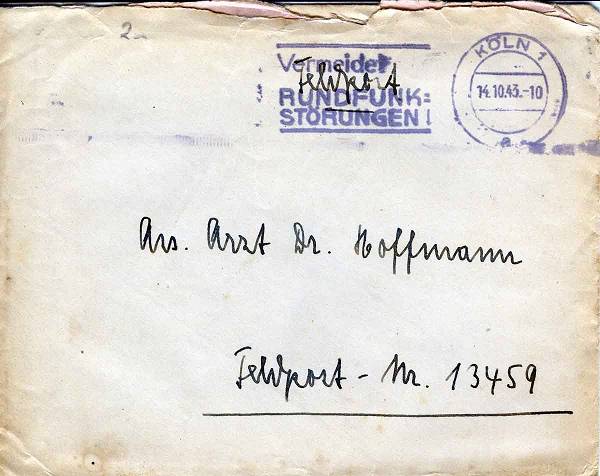 2
Vermeidet
Feldpost
RUNDFUNK=
STÖRUNGEN!
KÖLN 1
14.10.43.-10
a
Ass. Arzt Dr. Hoffmann
Feldpost - Nr. 13459